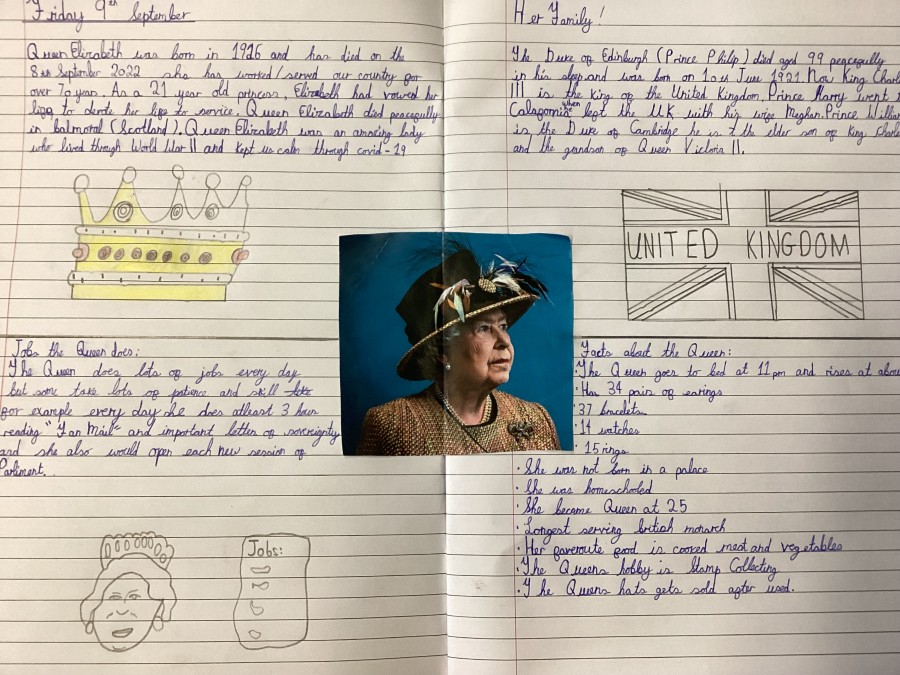 Friday 9th September
Queen Elizabeth was born in 1926 and has died on the
8th September 2022 she has worked/served our country for
over 70 years. As a 21 year old princess, Elizabeth had vowed her
life, to devote her life to service. Queen Elizabeth died peacefully
in balmoral (Scotland). Queen Elizabeth was an amazing lady
who lived through World War II and kept us calm through covid-19
Her Family!
The Duke of Edinburgh (Prince Philip) died aged 99 peacefully
in his sleep and was born on 10th June 1921. Now King Charl
III is the king of the United Kingdom. Prince Harry went t
when
left the UK with his wife Meghan. Prince William
is the Duke of Cambridge he is the elder son of King Charle
and the grandson of Queen Victoria II.
UNITED KINGDOM
Jobs the Queen does:
The Queen does lots of jobs every day
but some take lots of patience and still take
for example every day she does atleast 3 hour
reading "Fan Mail" and important letter of sovereignty
and she also would open each new session of
Parliment.
Jobs:
Facts about the Queen:
·The Queen goes to bed at 11pm and rises at abou
·Has 34 pair of earings
·37 bracelets
·14 watches
·15 rings
·She was not born in a palace
·She was homeschooled
·She became Queen at 25
·Longest serving british monarch
·Her faveroute food is cooked meat and vegetables
·The Queens hobby is Stamp Collecting
·The Queens hats gets sold after used.